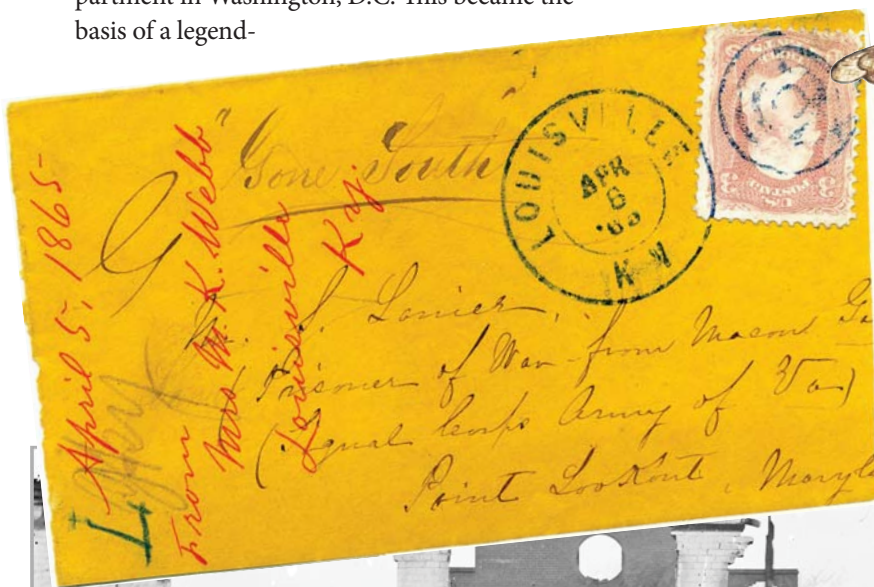 partment in Washington, D.C. This became the
basis of a legend-
April 5, 1865-
From
Mrs M. K. Webb
Louisville
Ky.
"Gone South"
LOUISVILLE
APR
6
'65
KY.
S. Lanier,
(Prisoner of War from Macon Ga
(Signal Corps Army of Va)
Point Lookout, Maryla
U.S. POSTAGE
3 3